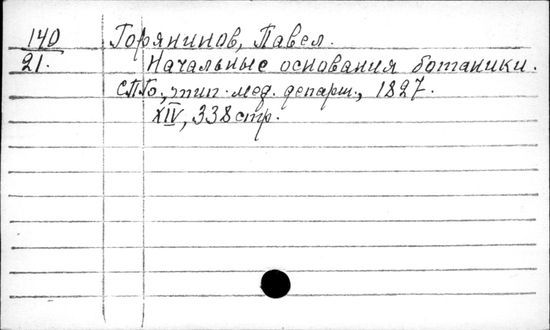 140 Горянинов, Павел.
21. Начальные основания ботаники.
СПб., тип. мед. департ., 1827.
XIV, 338 стр.